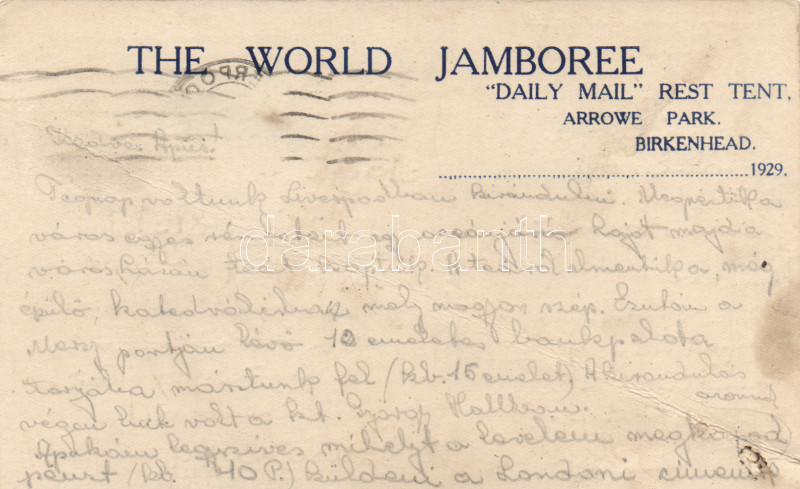 THE WORLD JAMBOREE
"DAILY MAIL" REST TENT,
ARROWE PARK.
BIRKENHEAD.
1929.
Kedves Apus!
Tegnap voltunk Liverpoolban kirándulni. Megnéztük a
város egyes részeit, egy hajót majd a
városházán teát kaptunk. A teánál elmentünk a, még
épülő, katedrálishoz mely nagyon szép. Ezután a
Mersy partján lévő 10 emeletes bankpalota
másztunk fel (kb. 15 emelet) A kirándulás
végén luck volt a kt. György Hallban.
Apukám légyszíves mihelyt a levelem megkapod
pénzt (kb. 40 P.) küldeni a Londoni címemre
darabanth